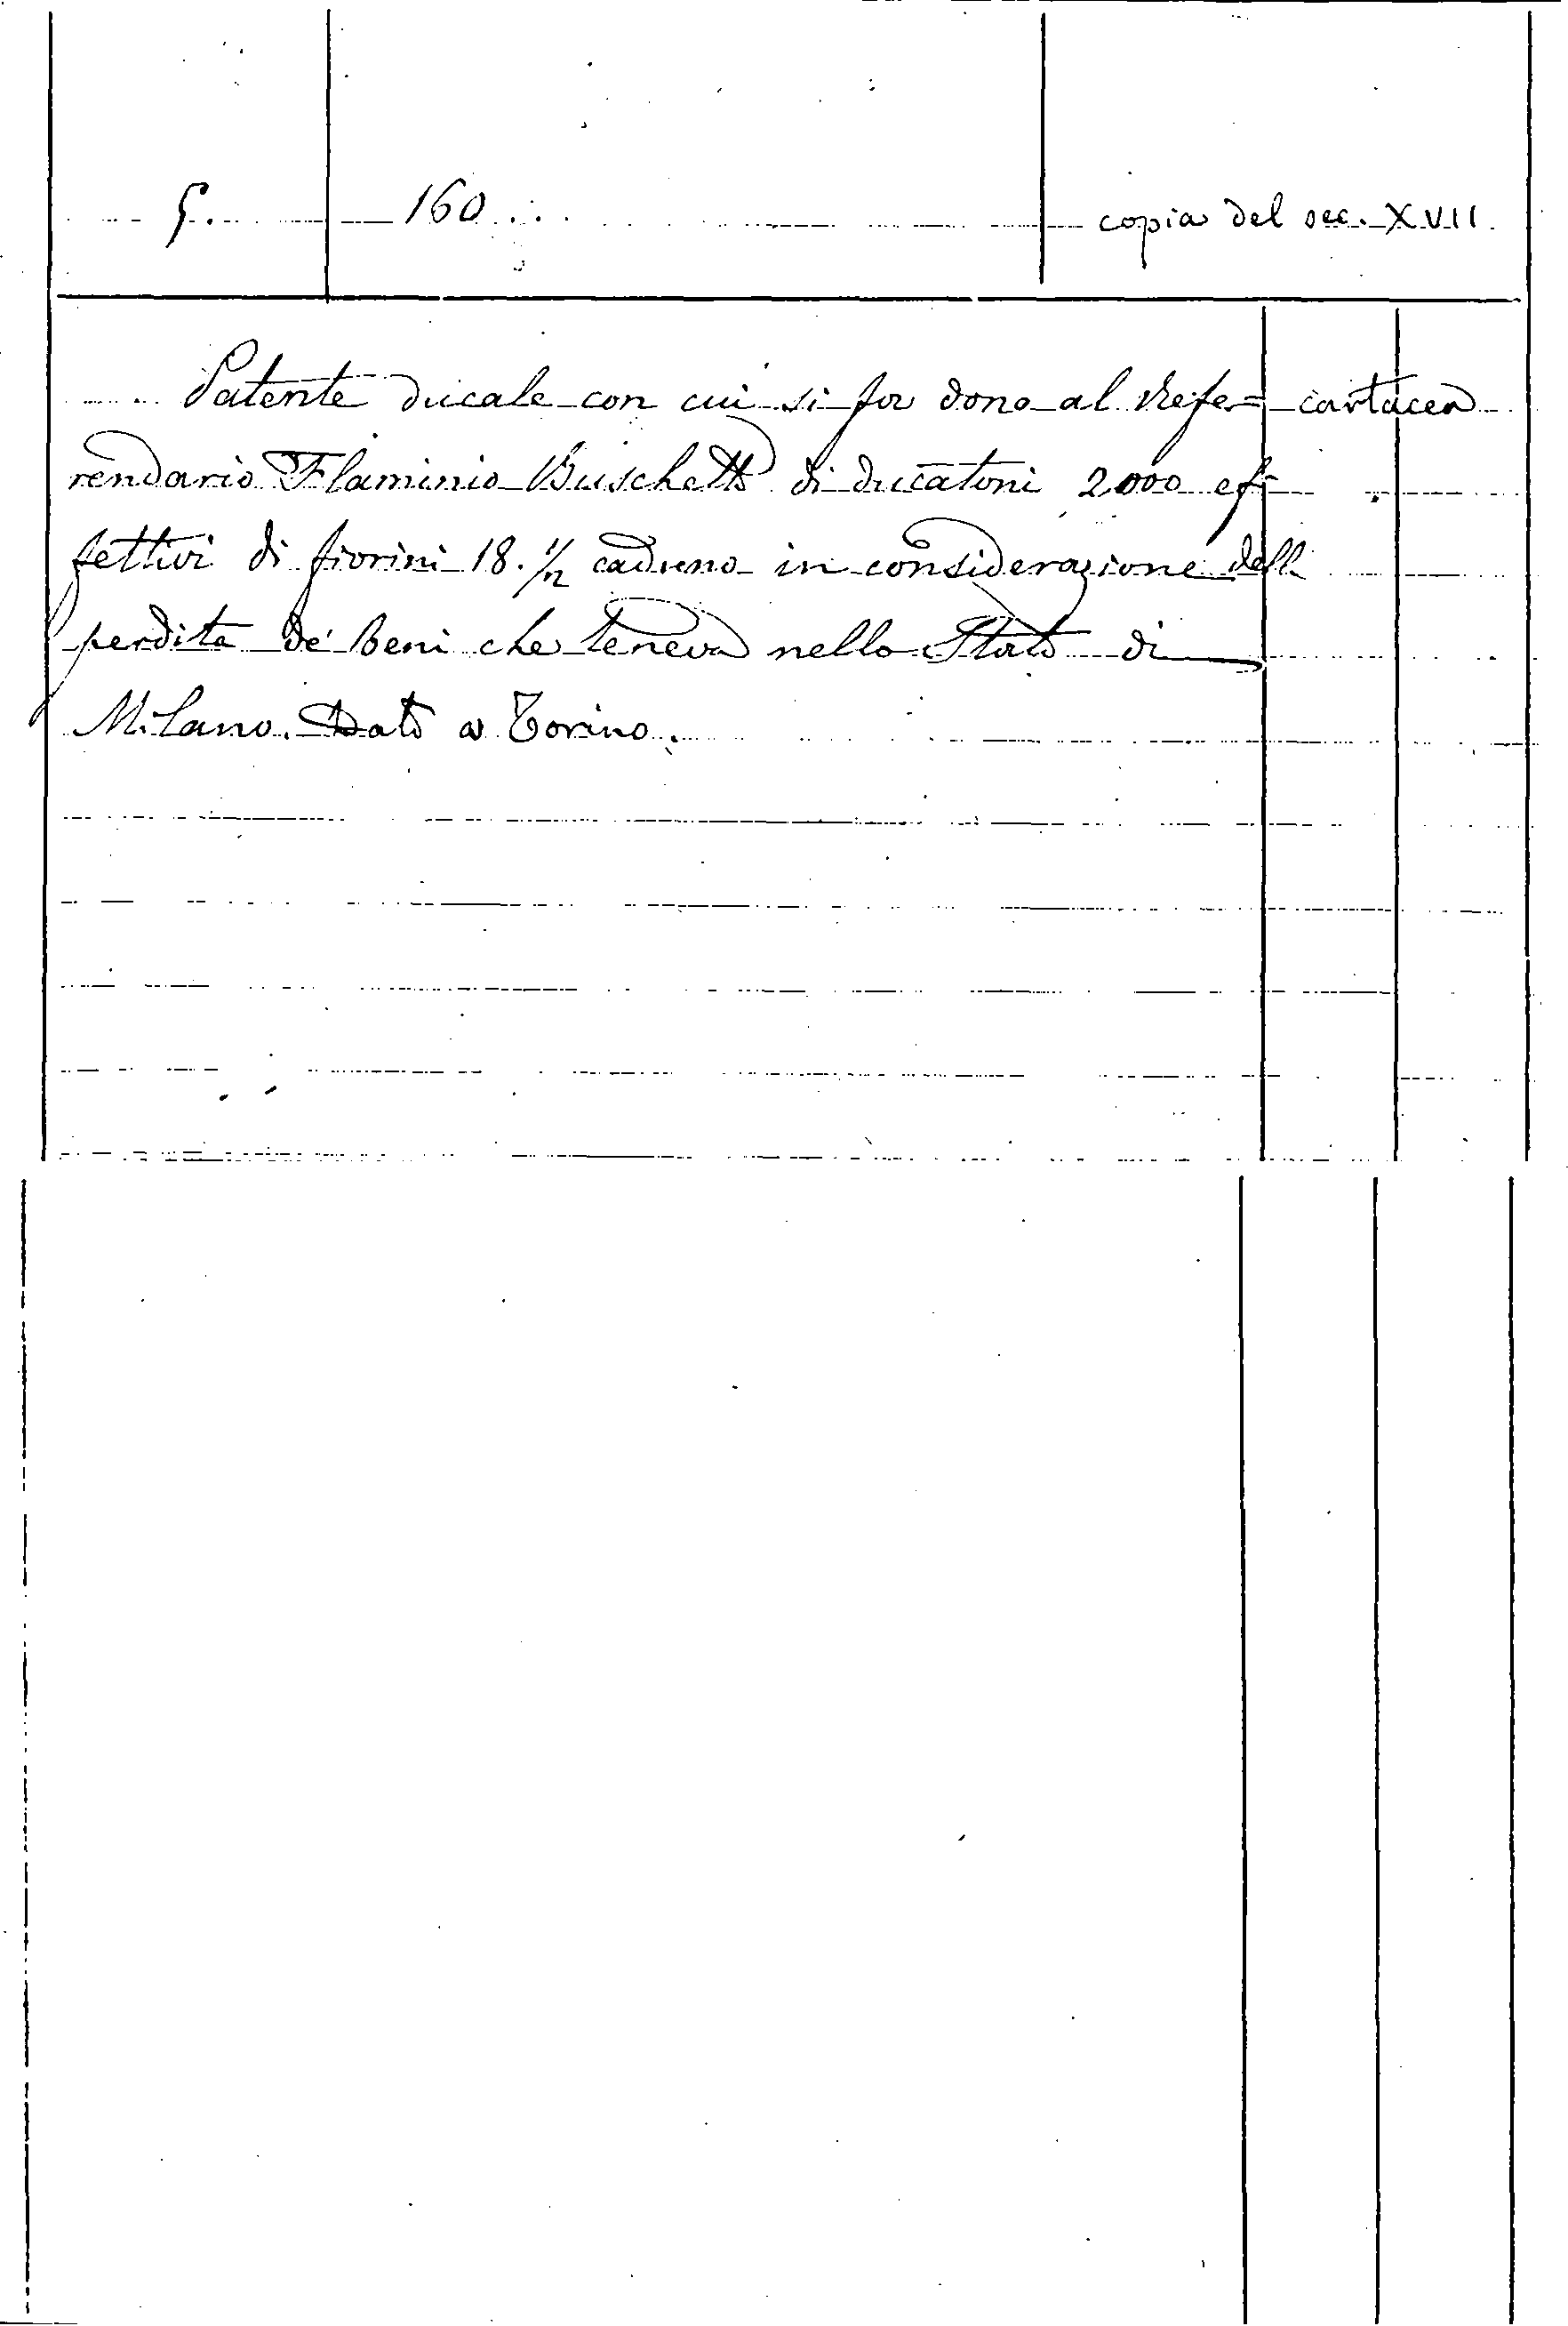 5. 160 copia del sec. XVII.
Patente ducale con cui si fa dono al Refe= cartacea
rendario Flaminio Buschetti di ducatoni 2000 ef=
fettivi di fiorini 18. 1/2 caduno in considerazione della
perdita de' beni che teneva nello Stato di
Milano. Dato a Torino.